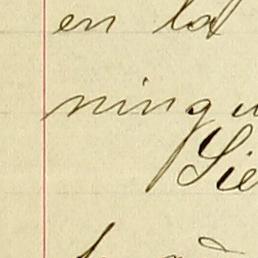 en la
ningu
Sie